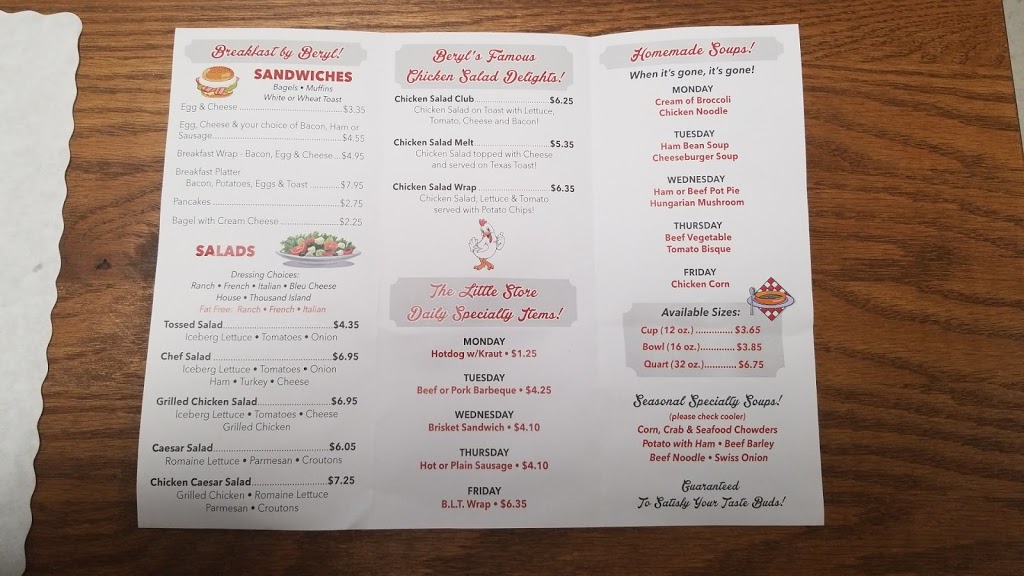 Breakfast by Beryl!
SANDWICHES
Bagels • Muffins
White or Wheat Toast
Egg & Cheese ........................................ $3.35
Egg, Cheese & your choice of Bacon, Ham or
Sausage........................................ $4.55
Breakfast Wrap - Bacon, Egg & Cheese...$4.95
Breakfast Platter
Bacon, Potatoes, Eggs & Toast ............$7.95
Pancakes ........................................ $2.75
Bagel with Cream Cheese ...................... $2.25
SALADS
Dressing Choices:
Ranch • French • Italian • Bleu Cheese
House • Thousand Island
Fat Free: Ranch • French • Italian
Tossed Salad........................................$4.35
Iceberg Lettuce • Tomatoes • Onion
Chef Salad ........................................$6.95
Iceberg Lettuce • Tomatoes • Onion
Ham • Turkey • Cheese
Grilled Chicken Salad......................$6.95
Iceberg Lettuce • Tomatoes • Cheese
Grilled Chicken
Caesar Salad........................................$6.05
Romaine Lettuce • Parmesan • Croutons
Chicken Caesar Salad......................$7.25
Grilled Chicken • Romaine Lettuce
Parmesan • Croutons
Beryl's Famous
Chicken Salad Delights!
Chicken Salad Club......................$6.25
Chicken Salad on Toast with Lettuce,
Tomato, Cheese and Bacon!
Chicken Salad Melt......................$5.35
Chicken Salad topped with Cheese
and served on Texas Toast!
Chicken Salad Wrap......................$6.35
Chicken Salad, Lettuce & Tomato
served with Potato Chips!
The Little Store
Daily Specialty Items!
MONDAY
Hotdog w/Kraut • $1.25
TUESDAY
Beef or Pork Barbeque • $4.25
WEDNESDAY
Brisket Sandwich • $4.10
THURSDAY
Hot or Plain Sausage • $4.10
FRIDAY
B.L.T. Wrap • $6.35
Homemade Soups!
When it's gone, it's gone!
MONDAY
Cream of Broccoli
Chicken Noodle
TUESDAY
Ham Bean Soup
Cheeseburger Soup
WEDNESDAY
Ham or Beef Pot Pie
Hungarian Mushroom
THURSDAY
Beef Vegetable
Tomato Bisque
FRIDAY
Chicken Corn
Available Sizes:
Cup (12 oz.) ............. $3.65
Bowl (16 oz.)............ $3.85
Quart (32 oz.)........... $6.75
Seasonal Specialty Soups!
(please check cooler)
Corn, Crab & Seafood Chowders
Potato with Ham • Beef Barley
Beef Noodle • Swiss Onion
Guaranteed
To Satisfy Your Taste Buds!